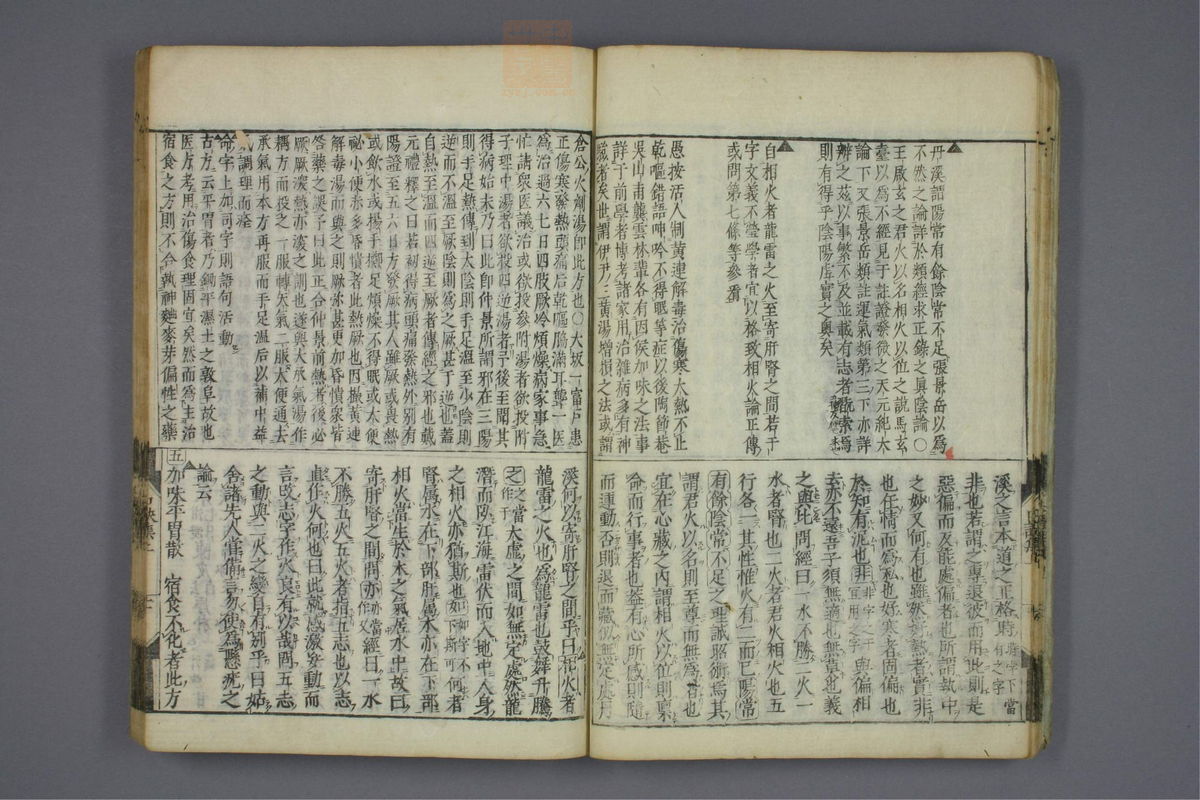 丹溪謂陽常有餘陰常不足張景岳以為
不然之論詳於類經求正錄之眞陰論○
王啟玄之君火以名相火以位之說馬玄
臺以為不經見于註證發微之天元紀大
論下又張景岳類註運氣類第三下亦詳
辨之茲以事繁不及並載有志者說索焉
則有得乎陰陽虛實之奧矣
自相火者龍雷之火至寄肝腎之間若干
字文義不瑩學者宜以格致相火論正傳
或問第七條等參看
愚按活人制黄連解毒治傷寒大熱不止
乾嘔錯語呻吟不得眠等症以後陶節菴
吳山甫龔雲林輩各有因侯加味之法事
詳于前學者博考諸家用治雜病多有神
驗者矣世謂伊尹三黄湯增損之法或謂
溪之言本道之正格時時字下當有之字
非也若謂之專退彼而用此則是
惡偏而反能處偏者也所謂執中
之妙又何有也雖然刻藝者實非
也任情而為私也好寒者固偏也
於知有泥也非非字之干宜用之字與偏相
去亦不遠吾子須無適也無莫也義
之與比問經曰一水不勝二火一
水者腎也二火者君火相火也五
行各一其性惟火有二而已陽常
有餘陰常不足之理誠昭術焉其
謂君火以名則至尊而無為者也
宜在心臟之內謂相火以位則稟
命而行事者也蓋有心所感則隨
而運動否則退而藏似無定處丹
倉公火劑湯即此方也○大坂一富戶患
正傷寒發熱頭痛后乾嘔脇滿耳聾一医
為治過六七日四肢厥冷煩燥病家事急
忙請衆医議治或欲投參附湯者欲投附
子理中湯者欲投四逆湯者予後至聞其
得病始末乃曰此即仲景所謂邪在三陽
則手足熱傳到太陰則手足溫至少陰則
逆而不溫至厥陰則為之厥甚于逆也蓋
自熱至溫而四逆至厥者傳經之邪也戴
元禮釋之曰若初得病頭痛發熱外別有
陽證至五六日方發厥其人雖厥或畏熱
或飲水或楊手擲足煩燥不得眠或大便
祕小便赤多昏憒者此熱厥也因振黄連
解毒湯而與之則厥弥甚更加昏憒衆皆
咎藥之誤予曰此正合仲景前熱者後必
厥厥深熱亦深之訓也遂與大承氣湯作
耦方而投之一服轉矢氣二服大便通去
承氣用本方再服而手足溫后以補中益
氣調理而痊
命字上加司字則語句活動
古方云平胃者乃鋤平濕土之敦阜故也
医方考用治傷食理固宜矣然而為主治
宿食之方則不合執神麯麥芽偏性之藥
溪何以寄肝腎之間乎曰相火者
龍雷之火也為龍雷也鼓舞升騰
之之當作于大虛之間如無定處於龍
潛而歸江海雷伏而入地中人身
之相火亦猶斯也如如字不下斯可何者
腎屬水在下部肝屬木亦在下部
相火當生於木之氣居水中故曰
寄肝腎之間問亦亦當作又經曰一水
不勝五火五火者指五志也以志
直作火何也曰此就感激妄動而
言改志字作火良有以哉問五志
之動與二火之變自有別乎曰姑
舍諸先人嘗備言易使為懸疣之
論云
五加味平胃散 宿食不化者此方